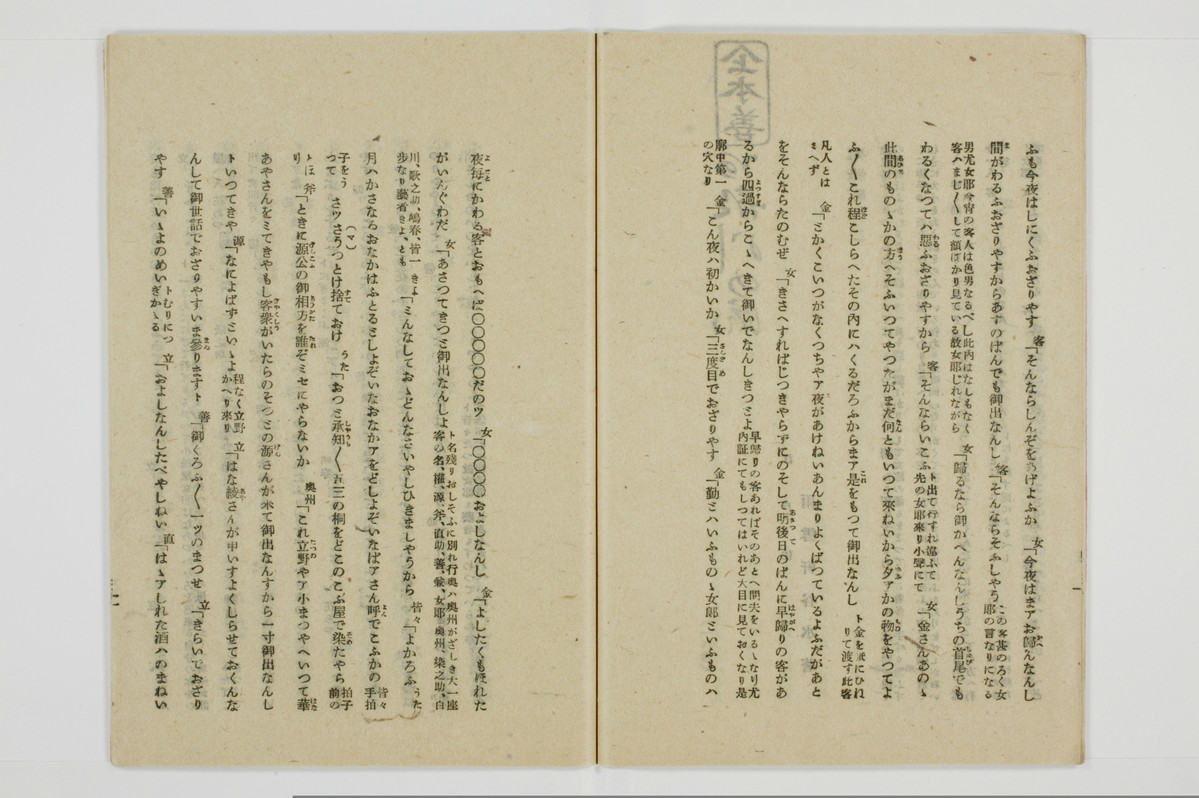 ふも今夜はしにくふおざりやす 客「そんならしんぞをあげよふか 女「今夜はまアお歸んなんし
間がわるふおざりやすからあすのばんでも御出なんし 客「そんならそふしやう この客甚のろく女郎の言なりになる
男尤女郎今宵の客人は色男なるべし此内はなしもなく客ハまじ〳〵して顔ばかり見ている故女郎じれながら 女「歸るなら御かへんなんしうちの首尾でも
わるくなつてハ悪ふおざりやすから 客「そんならいこふ ト出て行すれ違ふて先の女郎來り小聲にて 女「金さんあのゝ
此間のものゝかの方へそふいつてやつたがまだ何ともいつて來ねいから夕アかの物をやつてよ
ふ〳〵これ程こしらへたその内にハくるだろふからまア是をもつて御出なんし ト金を紙にひねりて渡す此客
凡人とはミへず 金「とかくこいつがなくつちやア夜があけねいあんまりよくばつているよふだがあと
をそんならたのむぜ 女「きさへすればじつきやらずにのそして明後日のばんに早歸りの客があ
るから四過からこゝへきて御いでなんしきつとよ 早歸りの客あればそのあとへ間夫をいるゝなり尤内証にてもしつてはいれど大目に見ておくなり是
廓中第一の穴なり 金「こん夜ハ初かいか 女「三度目でおざりやす 金「勤とハいふものゝ女郎といふものハ
夜毎にかわる客とおもへば〇〇〇〇〇だのツ 女「〇〇〇〇およしなんし 金「よしたくもほれた
がいんぐわだ 女「あさつてきつと御出なんしよ ト名残りおしそふに別れ行奥ハ奥州がざしき大一座客の名、権、源、斧、直助、善、女郎、奥州、染之助、白
川、歌之助、嶋春、皆一歩なり藝者きよ、とも きよ「ミんなしておゝどんなさいやしひきましやうから 皆々「よかろふ うた
月ハかさならおなかはふとるとしよぞいなおなかアをどしよぞいなばアさん呼でこふかの 皆々手拍
子をうつて さツさうつとけ捨ておけ うた「おつと承知〳〵五三の桐をどこのこふ屋で染たやら 拍子前の
トほり 斧「ときに源公の御相方を誰ぞミセにやらないか 奥州「これ立野やア小まつやへいつて華
あやさんをミてきやもし客衆がいたらのそつとの源さんが來て御出なんすから一寸御出なんし
トいつてきや 源「なによばずといゝよ 程なく立野かへり來り 立「はな綾さんが申いすよくしらせておくんな
んして御世話でおざりやすいま參りますト 善「御くろふ〳〵一ツのまつせ 立「きらいでおざり
やす 善「いゝよのめい トむりにつぎかゝる 立「およしなんしたべやしねい 直「はゝアしれた酒ハのまねい